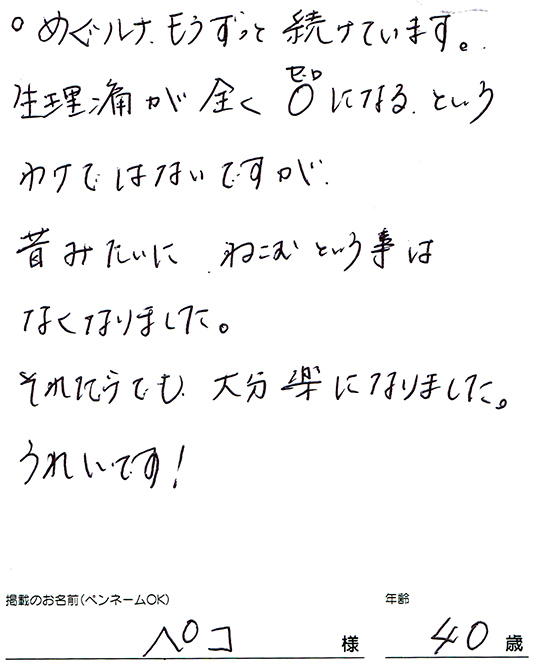 ○めぐルナ、もうずっと続けています。
生理痛が全く0になる、という
ゼロ
わけではないですが、
昔みたいに、ねこむという事は
なくなりました。
それだけでも、大分楽になりました。
うれしいです!
掲載のお名前(ペンネームOK)
年齢
ペコ 様
40 歳